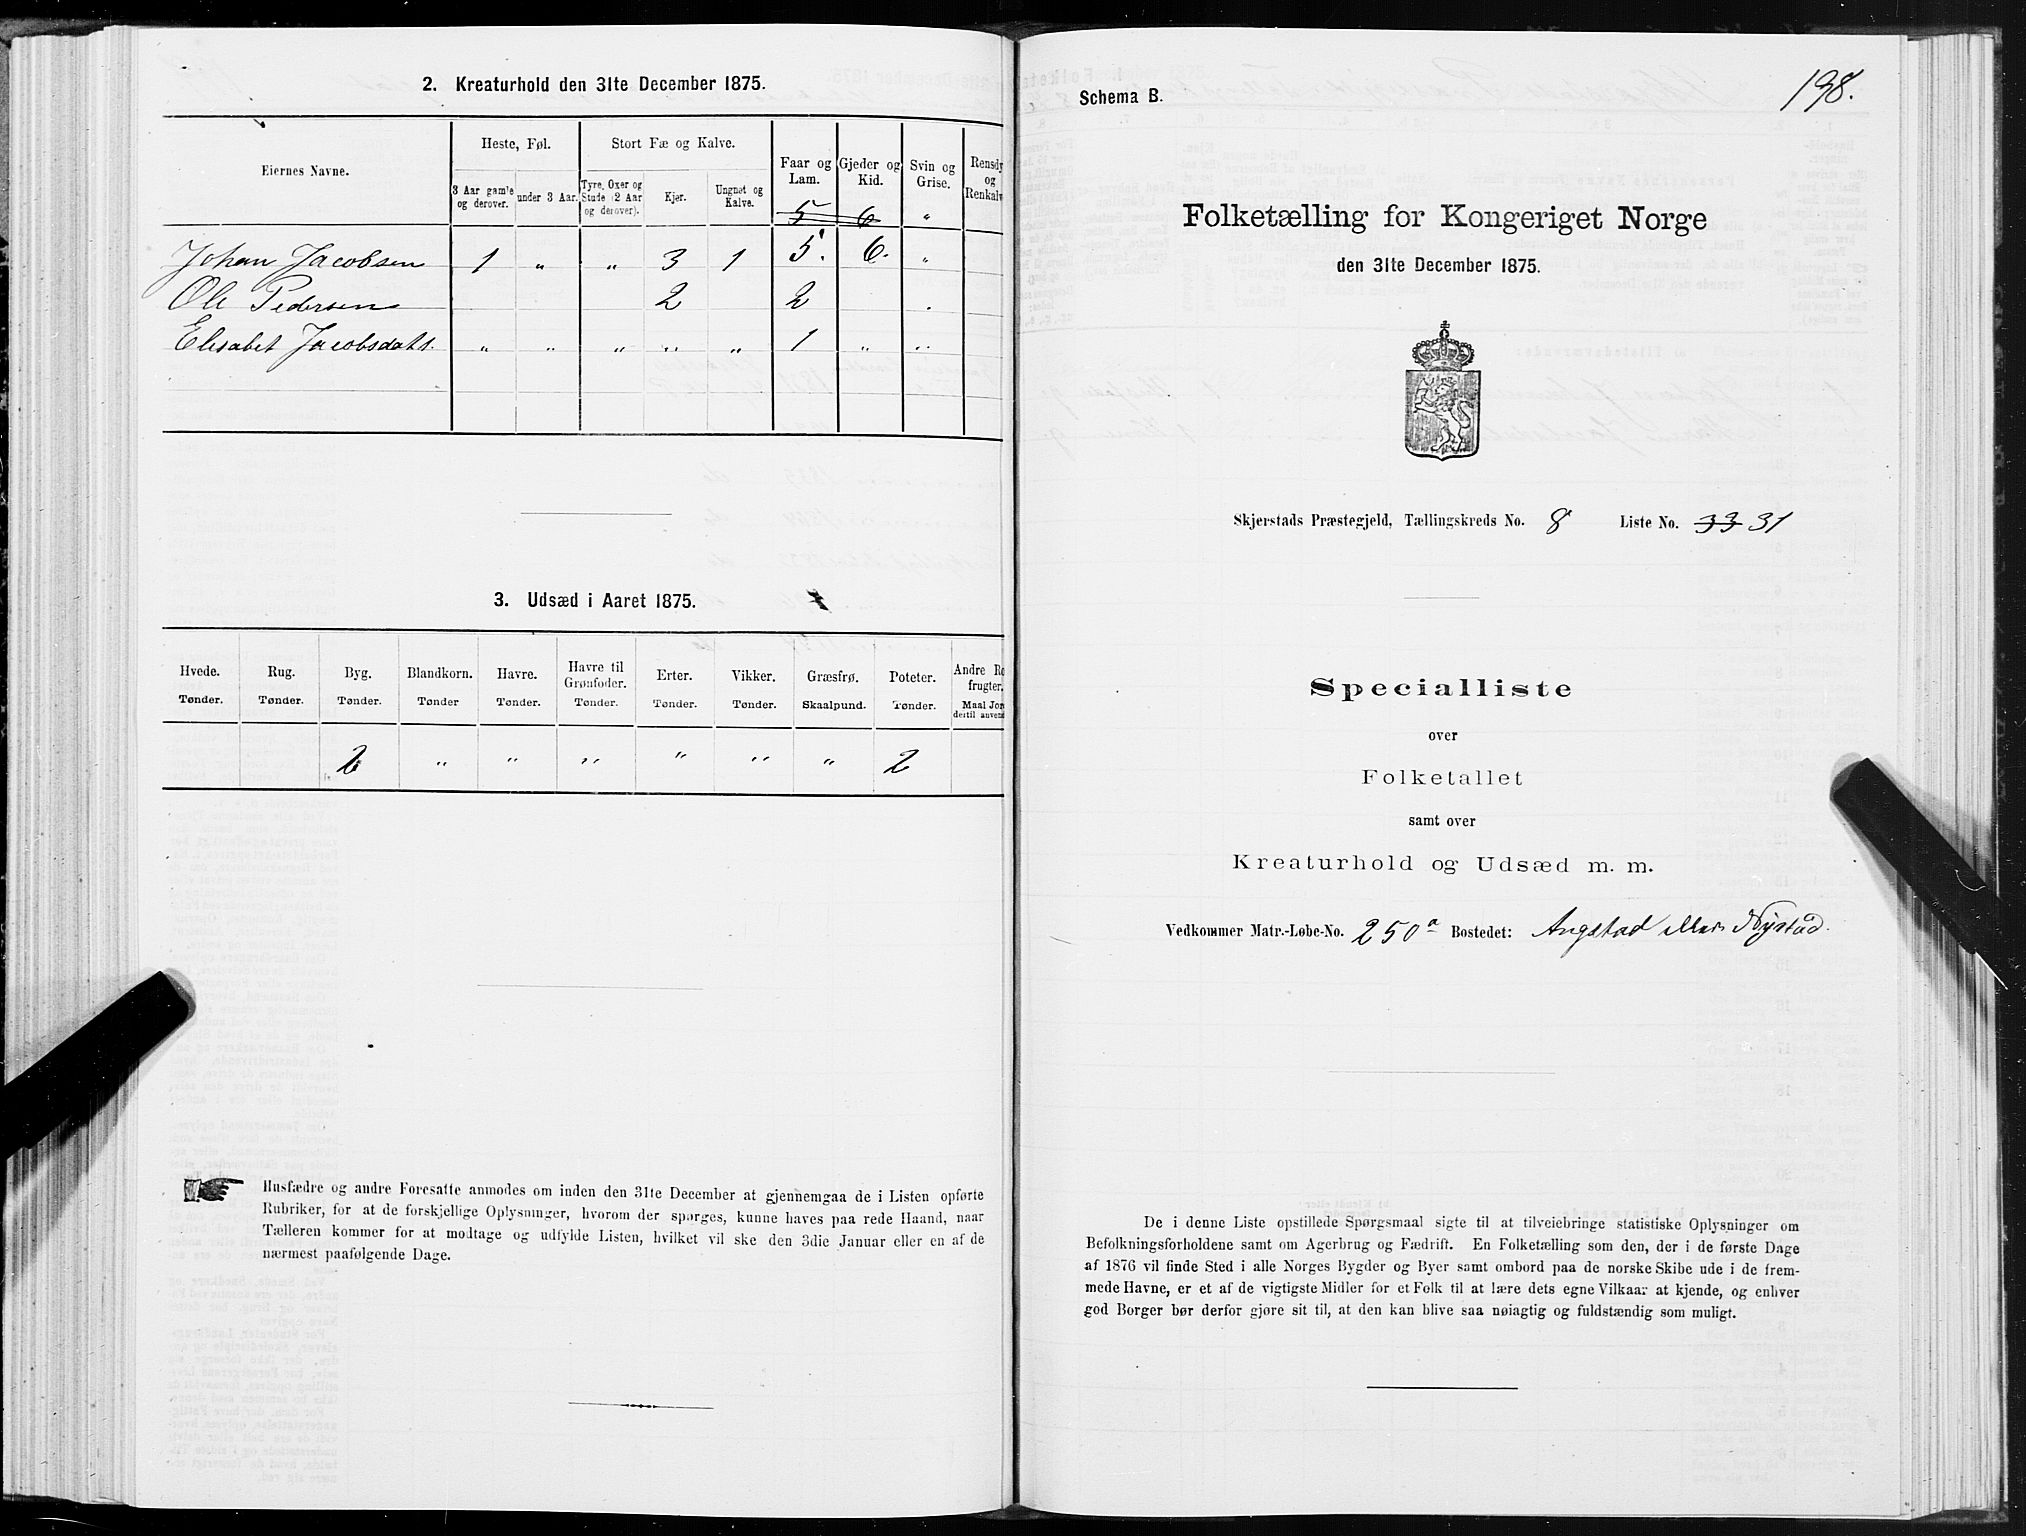 2. Kreaturhold den 31te December 1875.
Eiernes Navne.
Heste, Føl.
Stort Fæ og Kalve.
Faar og Lam.
Gjeder og Kid.
Svin og Grise.
Rensdy
og
Renkalv
3 Aar gamle og derover.
under 3 Aar.
Tyre, Oxer og Stude (2 Aar og derover).
Kjer.
Ungnøt og Kalve.
5 6 "
Johan Jacobsen 1 " " 3 1 5. 6. "
Ole Pedersen 2 2 .
Elisabet Jacobsdatr. " " " " " 1 " "
3. Udsæd i Aaret 1875.
Hvede. Rug. Byg. Blandkorn. Havre. Havre til Grønfoder. Erter. Vikker. Græsfrø. Poteter. Andre Ro frugter.
Tønder. Tønder. Tønder. Tønder Tønder. Tønder. Tønder. Tønder. Skaalpund. Tønder. Maal Jor dertil anven
2 " " " " " " 2
Husfædre og andre Foresatte anmodes om inden den 31te December at gjennemgaa de i Listen opførte
Rubriker, for at de forskjellige Oplysninger, hvorom der spørges, kunne haves paa rede Haand, naar
Tælleren kommer for at modtage og udfylde Listen, hvilket vil ske den 3die Januar eller en af de
nærmest paafølgende Dage.
Schema B.
198.
Folketælling for Kongeriget Norge
den 31te December 1875.
Skjerstads Præstegjeld, Tællingskreds No. 8 Liste No. 33 31
Specialliste
over
Folketallet
samt over
Kreaturhold og Udsæd m. m.
Vedkommer Matr.-Løbe-No. 250a Bostedet: Angstad eller Nystad.
De i denne Liste opstillede Spørgsmaal sigte til at tilveiebringe statistiske Oplysninger om
Befolkningsforholdene samt om Agerbrug og Fædrift. En Folketælling som den, der i de første Dage
af 1876 vil finde Sted i alle Norges Bygder og Byer samt ombord paa de norske Skibe ude i de frem-
mede Havne, er et af de vigtigste Midler for et Folk til at lære dets egne Vilkaar at kjende, og enhver
god Borger bør derfor gjøre sit til, at den kan blive saa nøiagtig og fuldstændig som muligt.